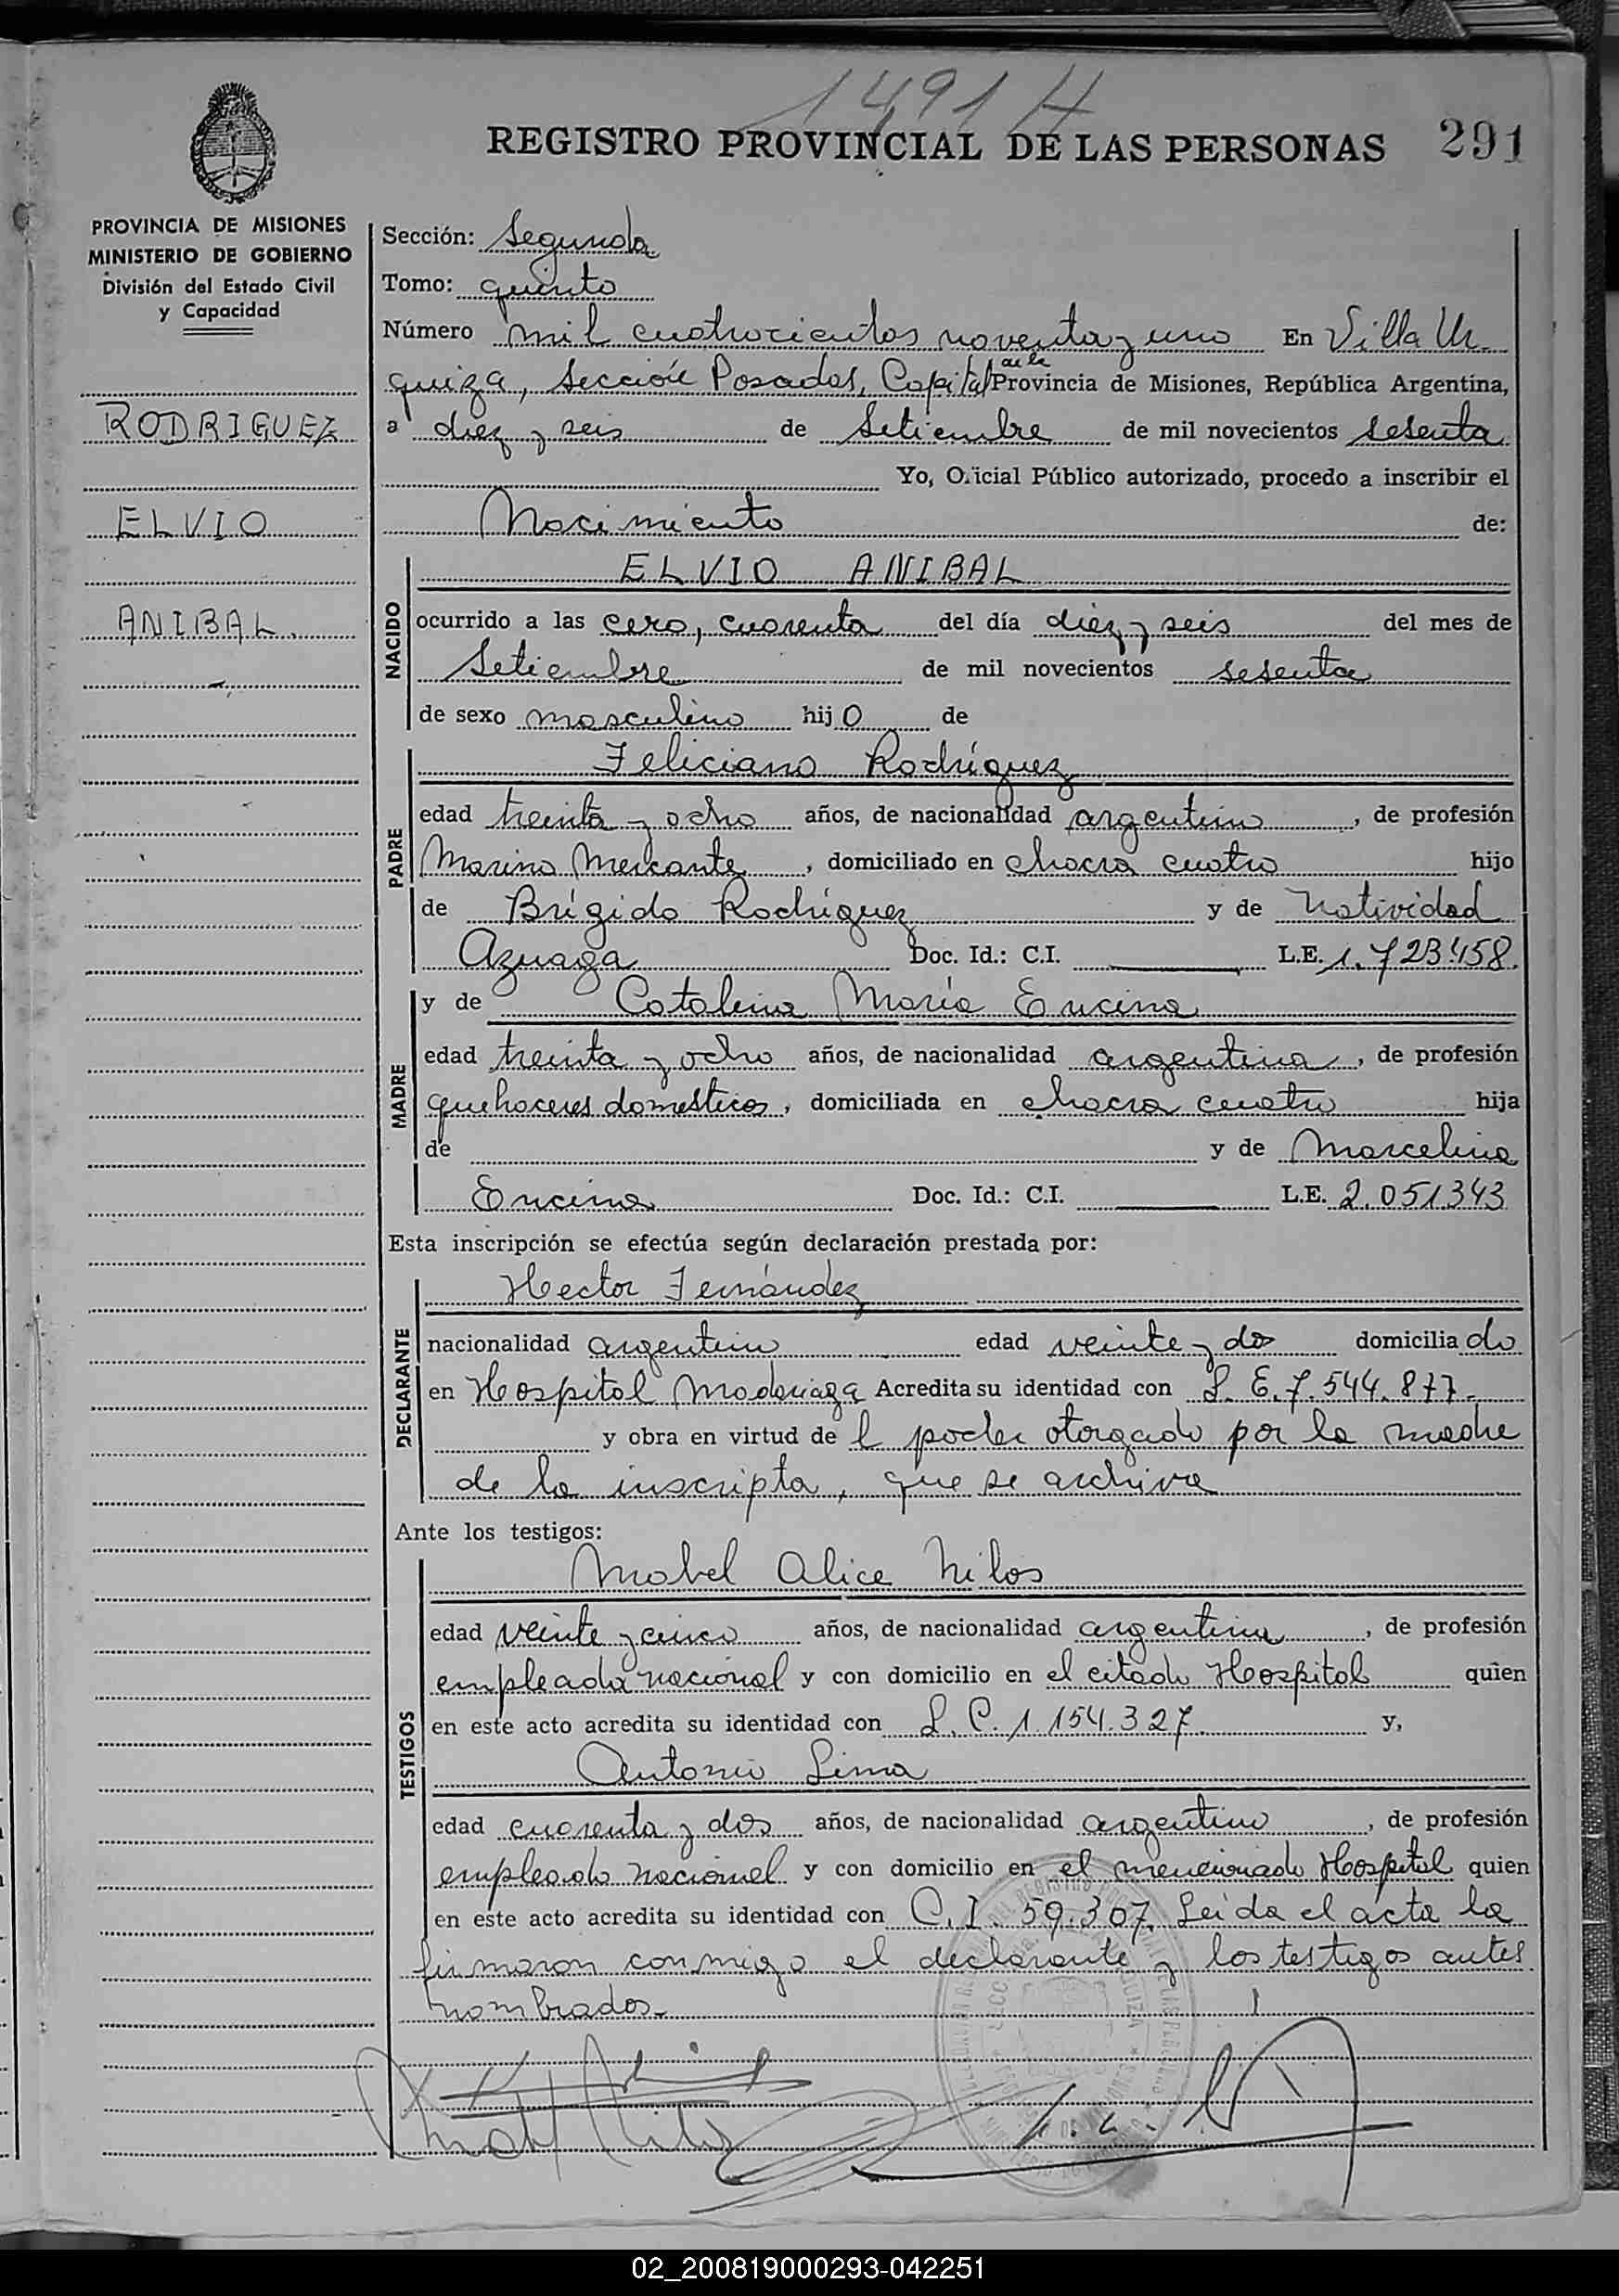 1491 H
REGISTRO PROVINCIAL DE LAS PERSONAS 291
PROVINCIA DE MISIONES
MINISTERIO DE GOBIERNO
División del Estado Civil
y Capacidad
RODRIGUEZ
ELVIO
ANIBAL.
Sección: Segunda
Tomo: quinto
Número mil cuatrocientos noventa y uno En Villa Ur-
quiza, Sección Posadas, Capital de la Provincia de Misiones, República Argentina,
a diez y seis de Setiembre de mil novecientos sesenta
Yo, Oficial Público autorizado, procedo a inscribir el
Nacimiento de:
NACIDO
ELVIO ANIBAL
ocurrido a las cero, cuarenta del día diez y seis del mes de
Setiembre de mil novecientos sesenta
de sexo masculino hijo de
PADRE
Feliciano Rodríguez
edad treinta y ocho años, de nacionalidad argentino, de profesión
Marino Mercante, domiciliado en chacra cuatro hijo
de Brígido Rodríguez y de Natividad
Azuaga Doc. Id.: C.I. L.E. 1.723.458.
MADRE
y de Catalina María Encina
edad treinta y ocho años, de nacionalidad argentina, de profesión
quehaceres domesticos, domiciliada en chacra cuatro hija
de y de Marcelina
Encina Doc. Id.: C.I. L.E. 2.051.343
Esta inscripción se efectúa según declaración prestada por:
DECLARANTE
Hector Fernández
nacionalidad argentino edad veinte y dos domiciliado
en Hospital Madariaga Acredita su identidad con L. E. 7.544.877.-
y obra en virtud del poder otorgado por la madre
de la inscripta, que se archiva
Ante los testigos:
TESTIGOS
Mabel Alice Nilos
edad veinte y cinco años, de nacionalidad argentina, de profesión
empleada nacional y con domicilio en el citado Hospital quien
en este acto acredita su identidad con L. C. 1.154.327. y,
Antonio Lima
edad cuarenta y dos años, de nacionalidad argentino, de profesión
empleado nacional y con domicilio en el mencionado Hospital quien
en este acto acredita su identidad con C. I. 59.307. Leída el acta la
firmaron conmigo el declarante y los testigos antes
nombrados.-
02_200819000293-042251